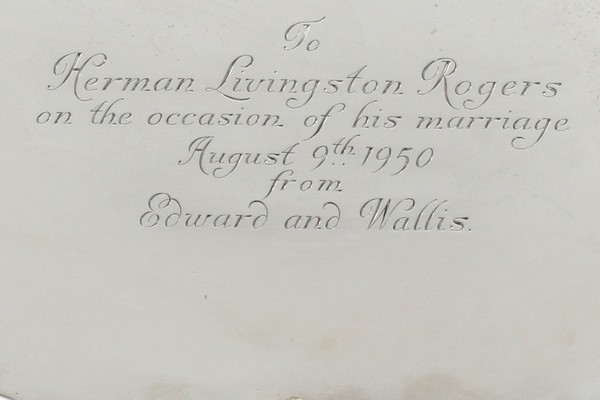 To
Herman Livingston Rogers
on the occasion of his marriage
August 9th. 1950
from
Edward and Wallis.